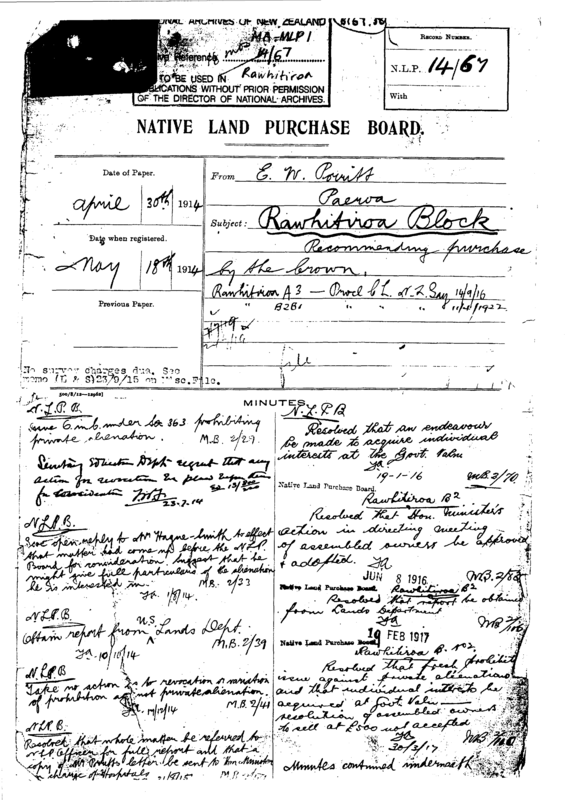 NAL ARCHIVES OF NEW ZEALAND
MA-MLP 1
Reference 14/67
TO BE USED IN Rawhitiroa
PUBLICATIONS WITHOUT PRIOR PERMISSION
OF THE DIRECTOR OF NATIONAL ARCHIVES.
Record Number.
N.L.P. 14/67
With
NATIVE LAND PURCHASE BOARD.
Date of Paper.
April 30th 1914
Date when registered.
May 18th 1914
Previous Paper.
No survey charges due. See
memo (L & S)23/9/15 on Misc.File.
From E. W. Porritt
Paeroa
Subject: Rawhitiroa Block
Recommending purchase
by the Crown.
Rawhitiroa A 3 — Procl C.L. N.Z. Gaz 14/9/16
" B2B1 " " "
file
MINUTES.
N.L.P.B.
Issue O. in C. under Sec 363 prohibiting
private alienation. M.B. 2/29.
23.7.14
N.L.P.B.
Send open reply to Mr Hayne-Smith to effect
that matter had come up before the N.L.P.
Board for consideration. Suggest that he
might give full particulars of the alienation
he is interested in. M.B. 2/33
1/9/14
N.L.P.B.
Obtain report from U.S. Lands Dept.
M.B. 2/39
10/10/14
N.L.P.B
Take no action as to revocation or variation
of prohibition against private alienation.
M.B. 2/41
14/12/14
N.L.P.B.
Resolved that whole matter be referred to
N.L.P. Officer for full report and that a
copy of Mr Porritt's letter be sent to Hon. Minister
in charge of Hospitals
N.L.P.B
Resolved that an endeavour
be made to acquire individual
interests at the Govt. Valn
19-1-16 M.B. 2/70
Native Land Purchase Board.
Rawhitiroa B2
Resolved that Hon. Minister's
action in directing meeting
of assembled owners be approved
& adopted.
JUN 8 1916
Native Land Purchase Board. Rawhitiroa B2
Resolved that report be obtained
from Lands Department
Native Land Purchase Board
19 FEB 1917
Rawhitiroa B. No 2.
Resolved that fresh prohibition
issue against private alienation
and that individual interests be
acquired at Govt. Valn
resolution of assembled owners
to sell at £500 not accepted
30/3/17
Minutes continued underneath